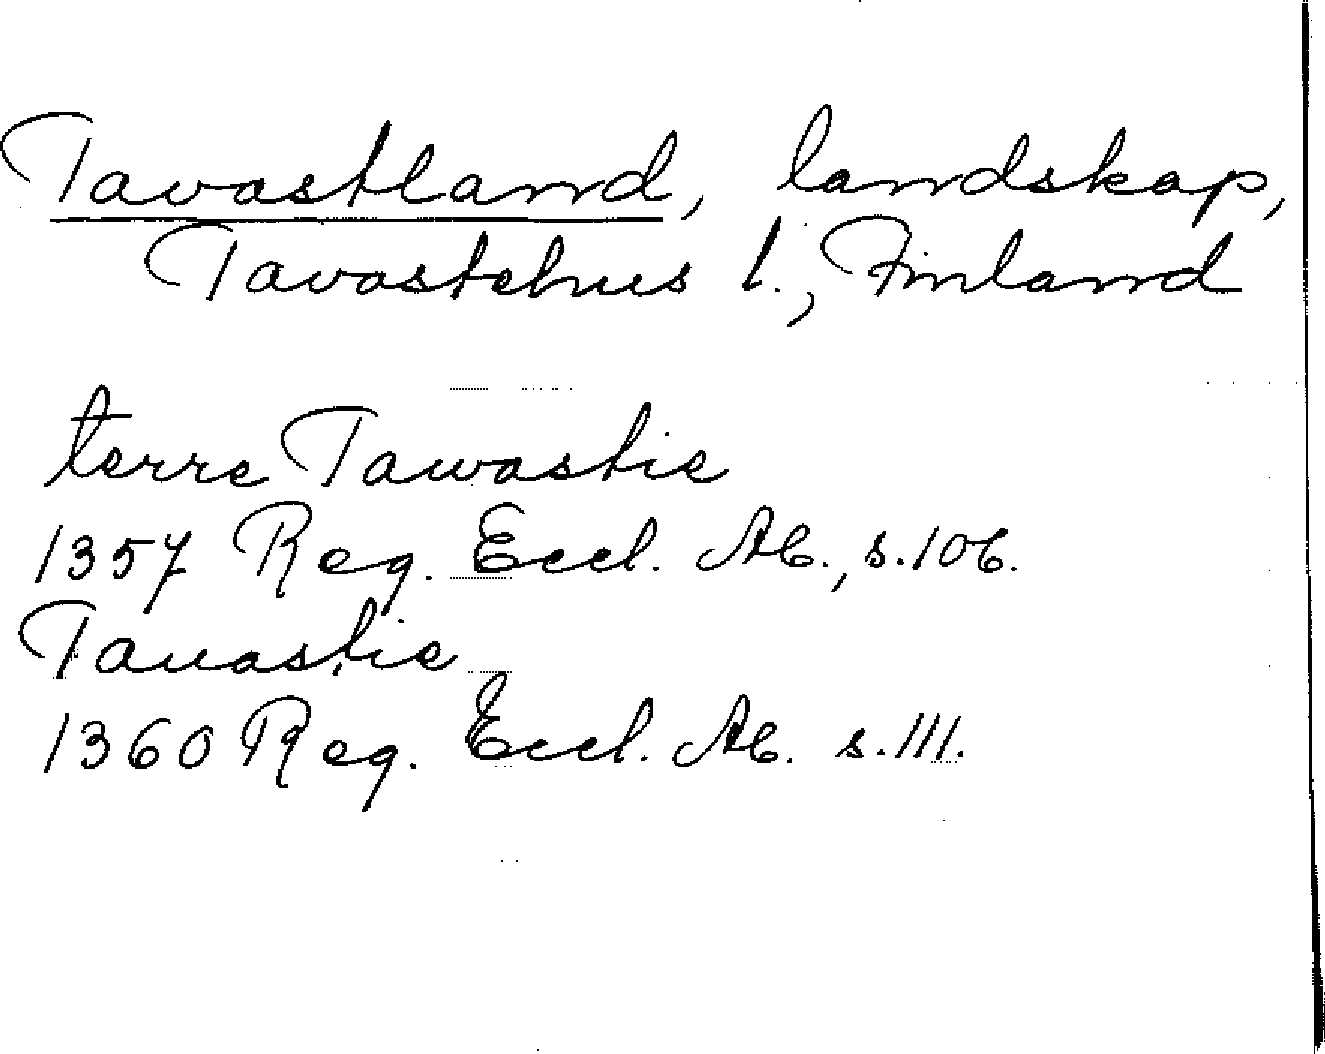 Tavastland, landskap,
Tavastehus l., Finland
terre Tawastie
1357 Reg. Eccl. Ab., s. 106.
Tauastie
1360 Reg. Eccl. Ab. s. 111.